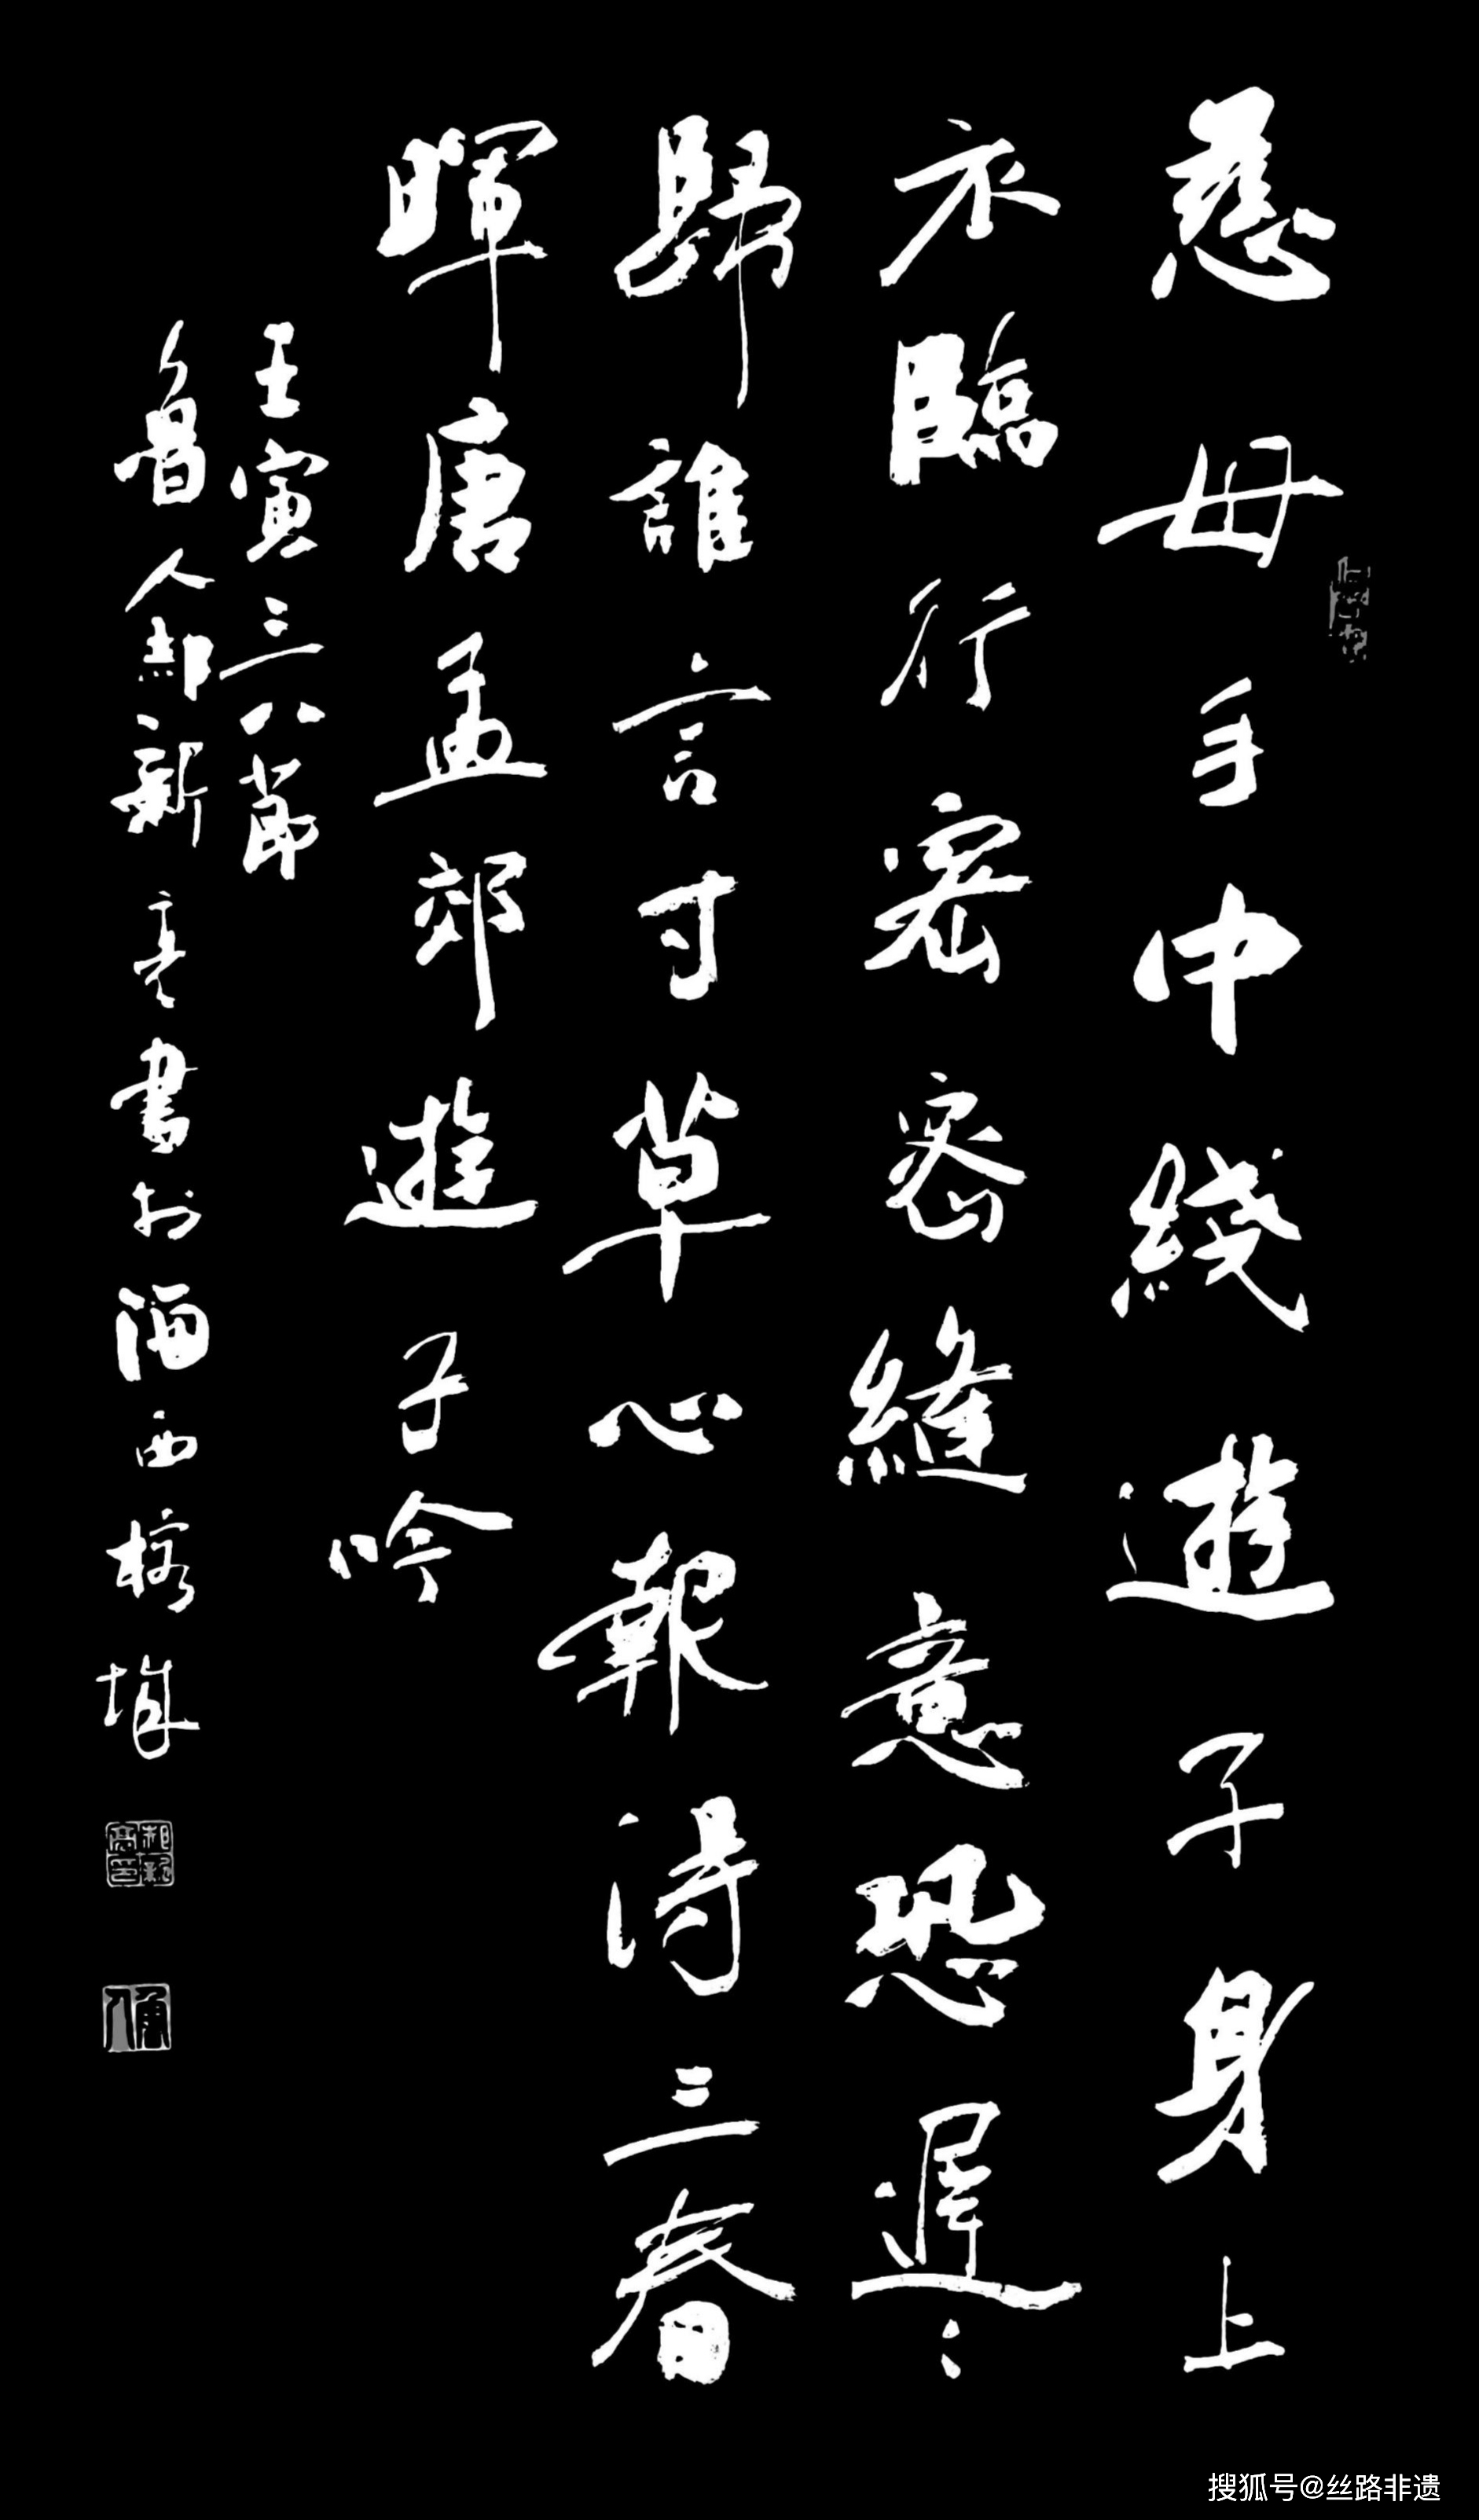 慈母手中綫遊子身上
衣臨行密密縫意恐遲〻
歸誰言寸草心報得三春
暉唐孟郊遊子吟
壬寅三八節
人新亮書於西
搜狐号@丝路非遗